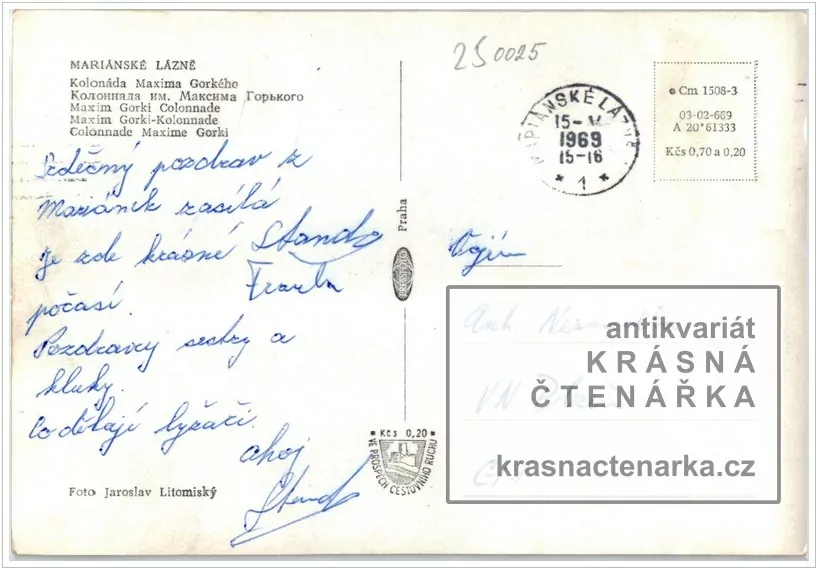 MARIÁNSKÉ LÁZNĚ
Kolonáda Maxima Gorkého
Колоннада им. Максима Горького
Maxim Gorki Colonnade
Maxim Gorki-Kolonnade
Colonnade Maxime Gorki
Srdečný pozdrav z
Mariánek zasílá
Standa
Je zde krásné
počasí.
Pozdravuj sestry a
kluky.
Co dělají lyžaři.
ahoj
Foto Jaroslav Litomiský
Praha
Kčs 0,20
VE PROSPĚCH CESTOVNÍHO RUCHU
250025
MARIÁNSKÉ LÁZNĚ
1969
15-16
* 1 *
Cm 1508-3
03-02-669
A 20*61333
Kčs 0,70 a 0,20
Vojín
antikvariát
KRÁSNÁ
ČTENÁŘKA
krasnactenarka.cz